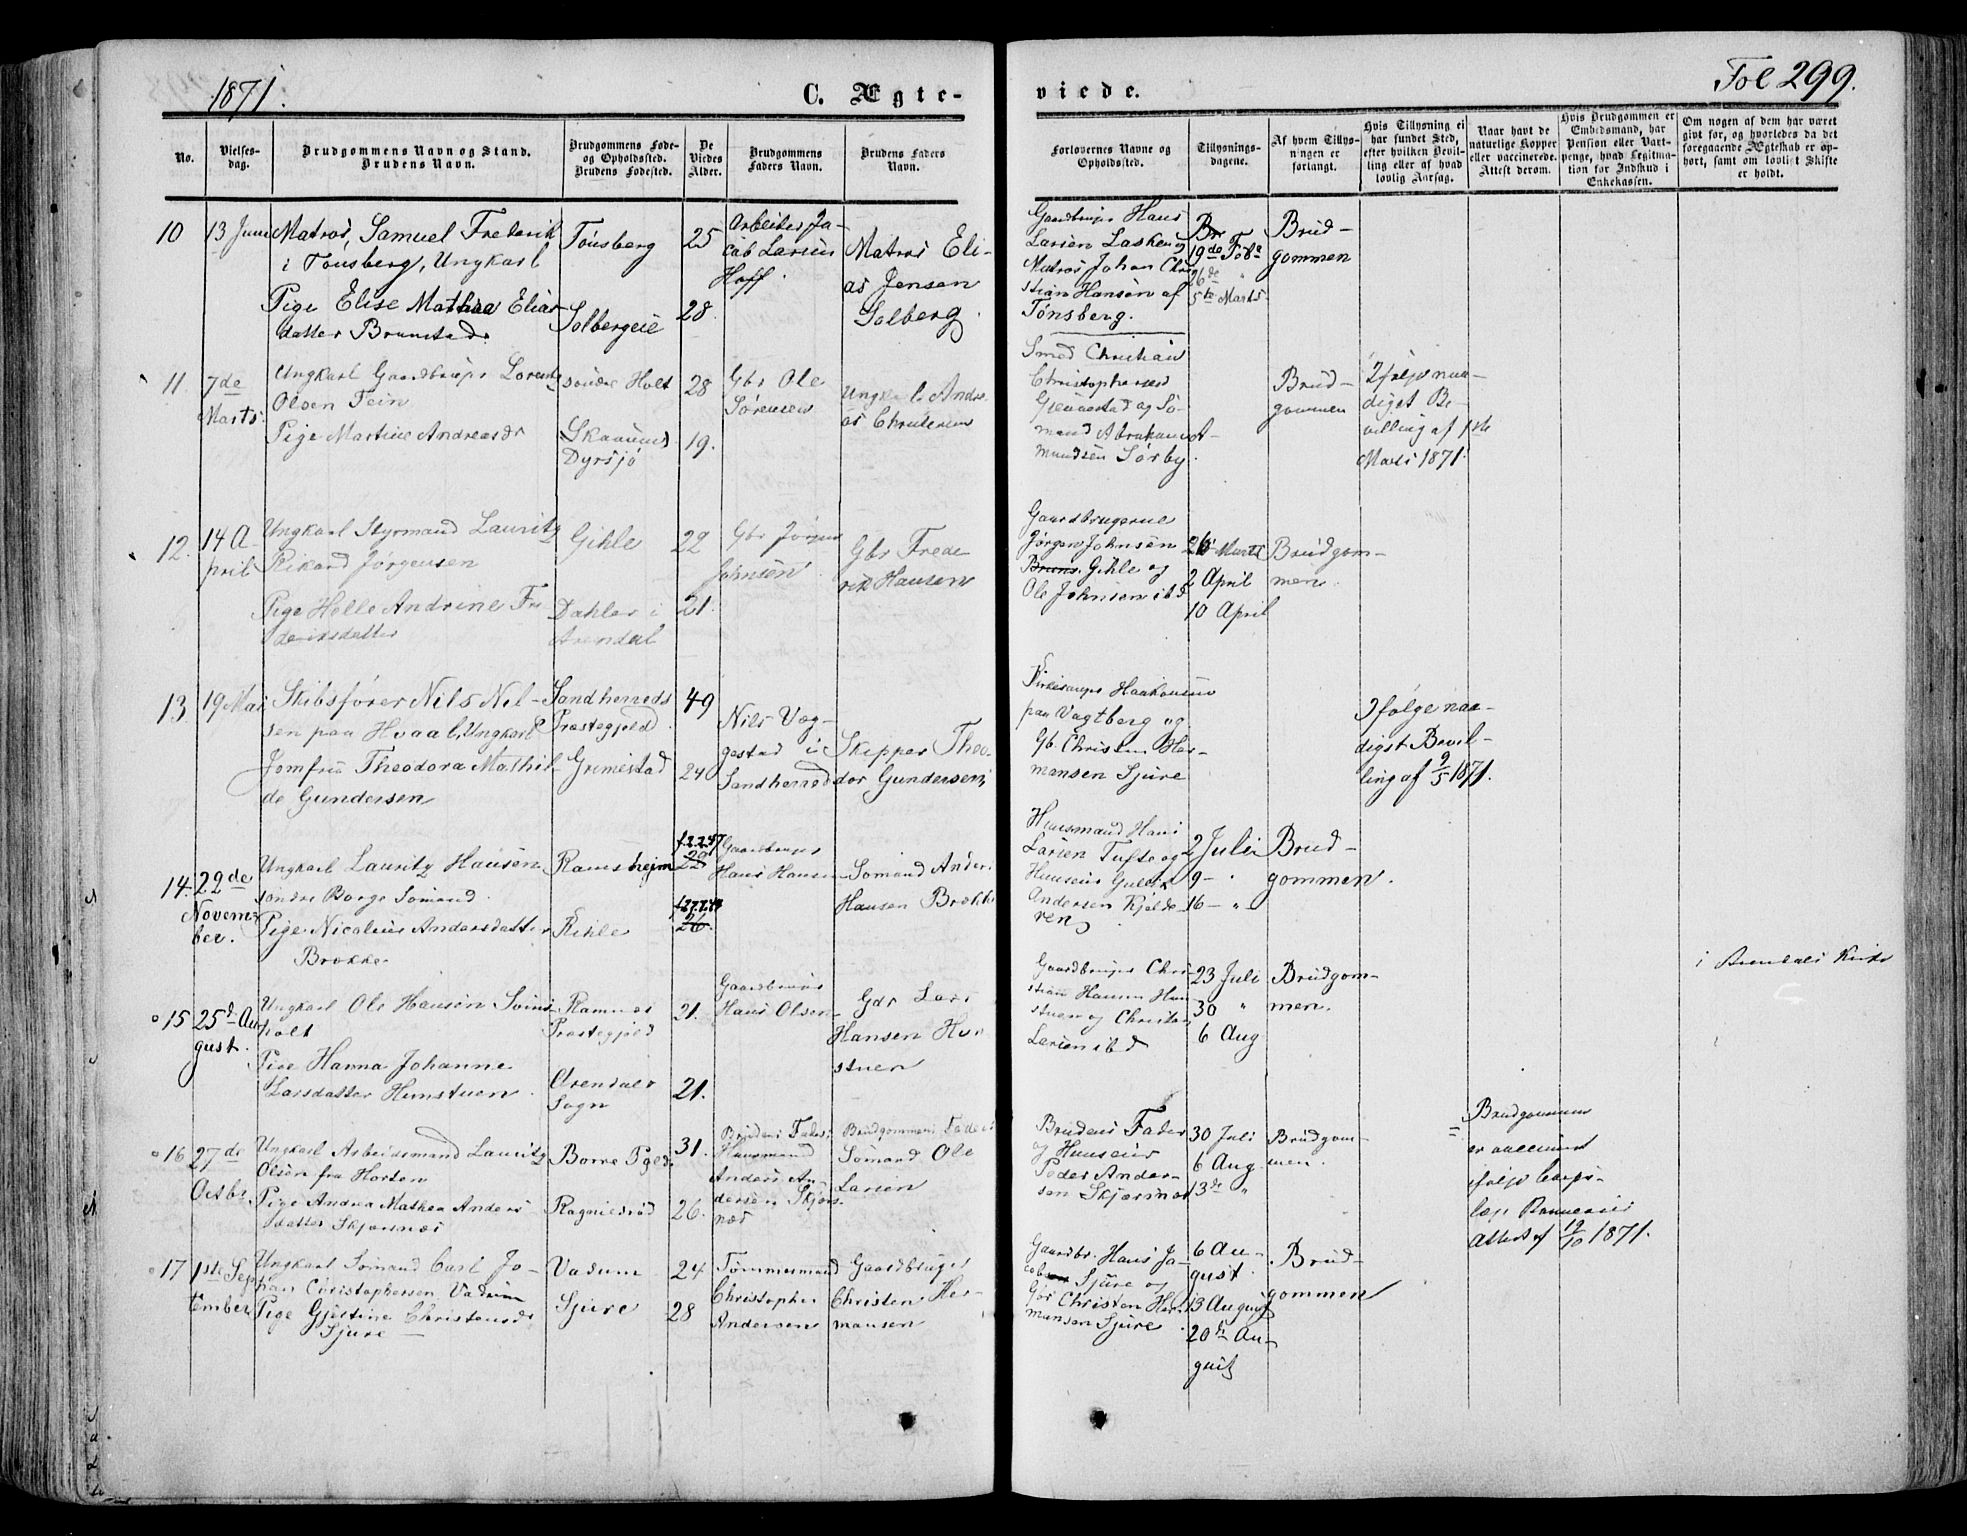 1871.
C. Ægte-
viede.
Fol 299.
No.
Vielses-
dag.
Brudgommens Navn og Stand.
Brudens Navn.
Brudgommens Føde-
og Opholdssted.
Brudens Fødested.
De
Viedes
Alder.
Brudgommens
Faders Navn.
Brudens Faders
Navn.
Forlovernes Navne og
Opholdssted.
Tillysnings-
dagene.
Af hvem Tillys-
ningen er
forlangt.
Hvis Tillysning ei
har fundet Sted,
efter hvilken Bevil-
ling eller af hvad
lovlig Aarsag.
Naar havt de
naturlige Kopper
eller vaccinerede.
Attest derom.
Hvis Brudgommen er
Embedsmand, har
Pension eller Vart-
penge, hvad Legitima-
tion for Indskud i
Enkekassen.
Om nogen af dem har været
gift før, og hvorledes da det
foregaaende Ægteskab er op-
hørt, samt om lovligt Skifte
er holdt.
10
13 Juni
Matros, Samuel Frederik
i Tønsberg, Ungkarl
Pige Elise Mathea Elias
datter Brunstad
Tønsberg
Solbergeie
25
28.
Arbeider Ja-
cob Larsen
Hoff.
Matros Eli-
as Jensen
Solberg
Gaardbruger Hans
Larsen Lasken og
Matros Johan Chri
stian Hansen af
Tønsberg.
Br
19de Feb
26de "
5te Marts
Brud-
gommen
11.
7de
Marts
Ungkarl Gaardbruger Lorents
Olsen Fein
Pige Martine Andreasdr
søndre Holt
Skaanes
Dyrsjø
28
19.
Gbr Ole
Sørensen
Ungkarl Andre
as Christensen
Smed Christian
Christophersen
Gjennestad og Sø-
mand Abraham A-
mundsen Sørby.
Brud-
gommen
Ifølge naa-
digst Be-
villing af 1ste
Marts 1871.
12.
14 A
pril
Ungkarl Styrmand Lauritz
Rikard Jørgensen
Pige Helle Andrine Fre
deriksdatter
Gihle
Dahler i
Arendal
22
21.
Gbr Jørgen
Johnsen
Gbr Frede
rik Hansen
Gaardbrugerne
Jørgen Johnsen
Bruns. Gihle og
Ole Johnsen ibd
26 Marts
2 April
10 April
Brudgom-
men.
13.
19 Mai
Skibsfører Nils Nil-
sen paa Hvaal, Ungkarl
Jomfru Theodora Mathil-
de Gundersen
Sandherreds
Præstegjeld
Grimestad
49
24
Nils Væg-
gestad i
Sandherred
Skipper Theo-
dor Gundersen
Haakonsen
paa Vagtberg og
Gb. Christen Her-
mansen Sjure
Ifølge naa-
digst Bevil-
ling af 9/5 1871.
14.
22de
Novem-
ber.
Ungkarl Lauritz Hansen
søndre Borge Sømand
Pige Nicoline Andersdatter
Brekke
Ramsheim
Kihle
26.
Gaardbruger
Hans Hansen
Sømand Anders
Hansen Brekke
Huusmand Hans
Larsen Tufte og
Huuseier Gullik
Andersen Kjelde-
ren
2 Juli
9 - "
16 - "
Brud-
gommen.
15
25de Au
gust.
Ungkarl Ole Hansen Svins-
holt
Pige Hanna Johanne
Larsdatter Hunstuen
Ramnes
Præstegjeld
Arendals
Sogn
21.
21.
Gaardbruger
Hans Olsen
Gbr Lars
Hansen Hun
stuen
Gaardbruger Chri-
stian Hansen Hun
stuen og Christen
Larsen ibd
23 Juli
30 "
6 Aug
Brudgom-
men.
i Arendals Kirke
16
27de
Octbr
Ungkarl Arbeidsmand Lauritz
Olsen fra Horten
Pige Andrea Mathea Anders
datter Skjersnæs
Borre Pgld
Ragnildrød
31.
26.
Brudens Fader
Huusmand
Anders An-
dersen Skjers
næs
Brudgommens Fader
Sømand Ole
Larsen
Brudens Fader
og Huuseier
Peder Ander-
sen Skjersnæs
30 Juli
6 Aug
13de "
Brudgom-
men.
Brudgommen
er vaccineret
ifølge Corps-
læge
Attest af 12/10 1871.
17
1ste Sep
tember
Ungkarl Sømand Carl Jo-
han Christophersen Vadum
Pige Gjertine Christensdr
Sjure
Vadum
Sjure
24
28
Tømmermand
Christopher
Andersen
Gaardbruger
Christen Her-
mansen
Gaardbr. Hans Ja-
cobsen Sjure og
Gbr Christen Her-
mansen Sjure
6 Au-
gust
13 August
20de Au-
gust
Brud-
gommen